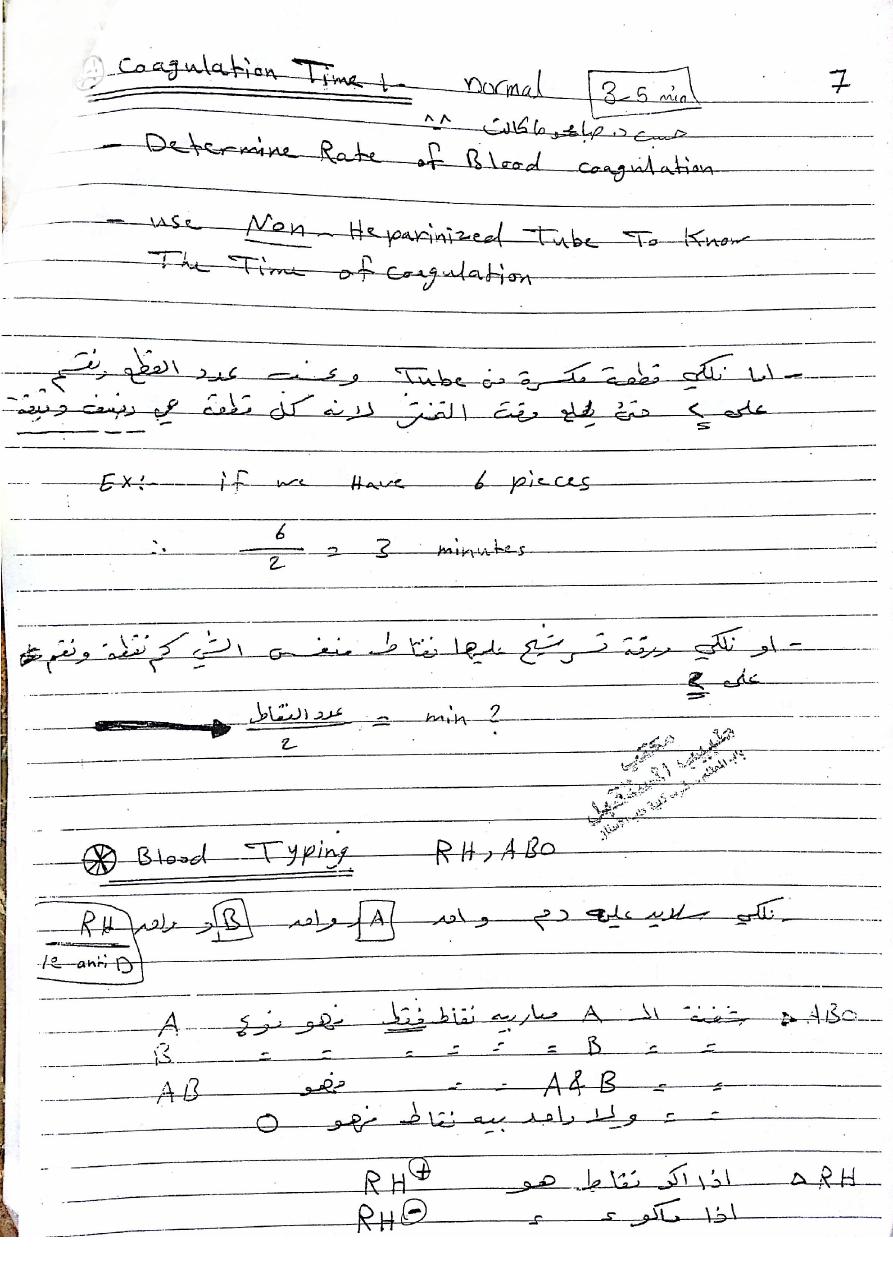 Coagulation Time :- normal 3-5 min 7
حسب د. صباح وما كالت ^^
- Determine Rate of Blood coagulation
- use Non-Heparinized Tube To Know
The Time of coagulation
- اما نلكي قطعة مكسرة من Tube وعدد القطع ونقسم
على 2 حتى يطلع وقت التخثر لانه كل قطعة هي بنصف دقيقة
Ex:- if we Have 6 pieces
∴ 6/2 = 3 minutes
- او نلكي ورقة ترشيح عليها نقاط منفس الشي كم نقطة ونقسم
على 2
عدد النقاط/2 = min ?
مكتب
طبيب المستقبل
Blood Typing RH, ABO
- نلكي سلايد عليه دم واحد A, واحد B و واحد RH
le anti D
ABO شفنة الـ A صاربيه نقاط فقط فهو نوع A
= = B = = = = = = B
= = A & B = = فهو AB
= = ولا واحد بيه نقاط فهو O
RH اذا اكو نقاط هو RH+
اذا ماكو = = RH-